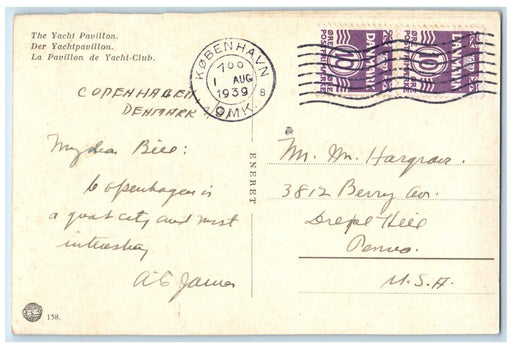 The Yacht Pavillon.
Der Yachtpavillon.
La Pavillon de Yacht-Club.
KØBENHAVN
700
1 AUG
1939
8
OMK.
DANMARK
10
DANMARK
10
COPENHAGEN
DENMARK
My dear Bill:
Copenhagen is
a great city and most
interesting
ENERET
Mr. Wm. Hargrave
3812 Berry Ave.
Drexel Hill
Penna.
U.S.A.
158.